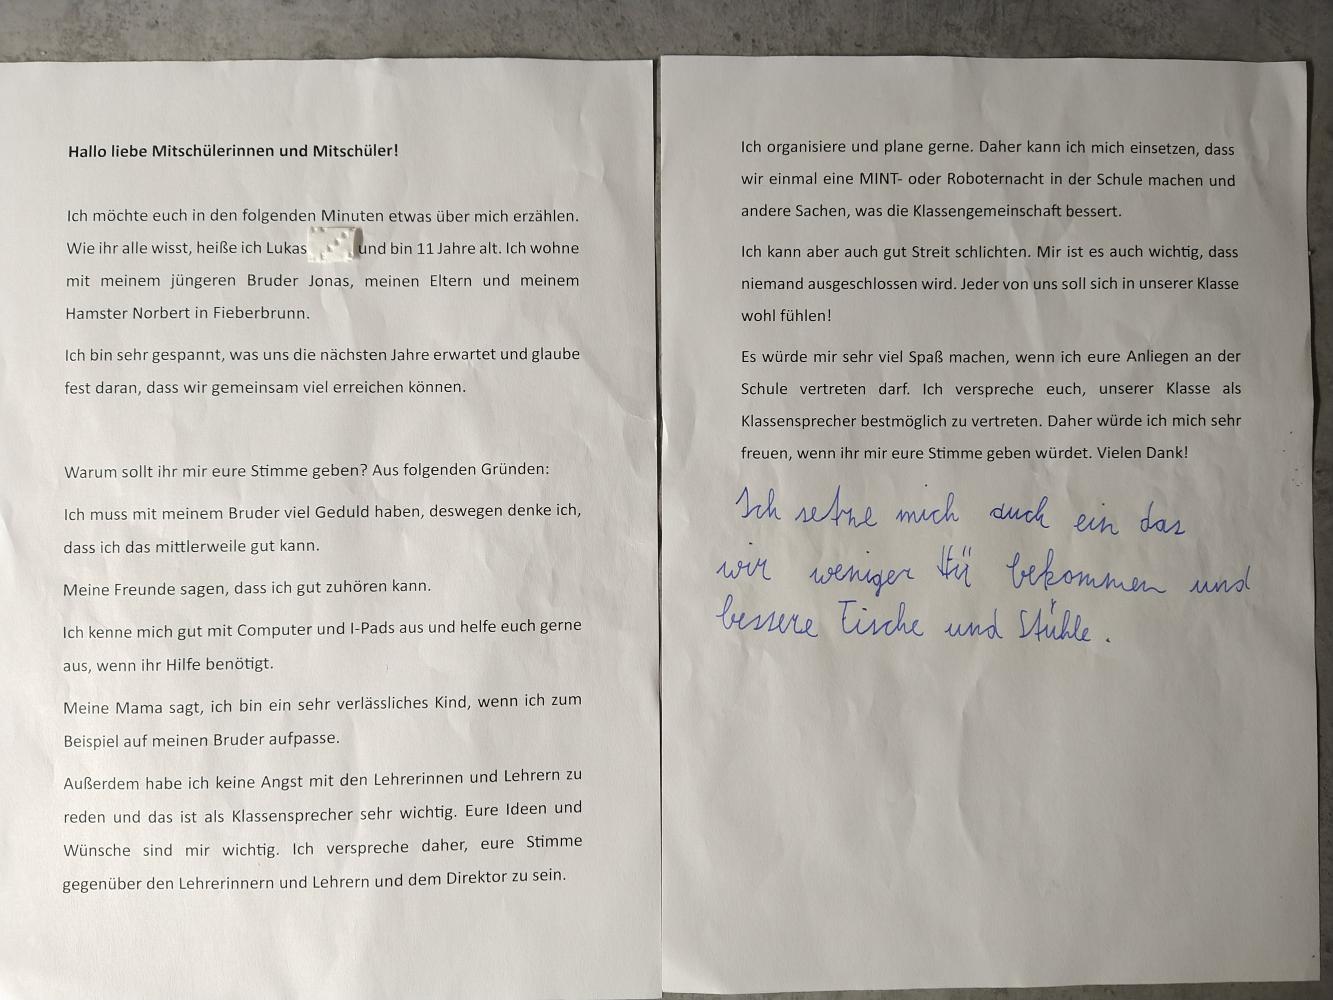 Hallo liebe Mitschülerinnen und Mitschüler!
Ich möchte euch in den folgenden Minuten etwas über mich erzählen.
Wie ihr alle wisst, heiße ich Lukas und bin 11 Jahre alt. Ich wohne
mit meinem jüngeren Bruder Jonas, meinen Eltern und meinem
Hamster Norbert in Fieberbrunn.
Ich bin sehr gespannt, was uns die nächsten Jahre erwartet und glaube
fest daran, dass wir gemeinsam viel erreichen können.
Warum sollt ihr mir eure Stimme geben? Aus folgenden Gründen:
Ich muss mit meinem Bruder viel Geduld haben, deswegen denke ich,
dass ich das mittlerweile gut kann.
Meine Freunde sagen, dass ich gut zuhören kann.
Ich kenne mich gut mit Computer und I-Pads aus und helfe euch gerne
aus, wenn ihr Hilfe benötigt.
Meine Mama sagt, ich bin ein sehr verlässliches Kind, wenn ich zum
Beispiel auf meinen Bruder aufpasse.
Außerdem habe ich keine Angst mit den Lehrerinnen und Lehrern zu
reden und das ist als Klassensprecher sehr wichtig. Eure Ideen und
Wünsche sind mir wichtig. Ich verspreche daher, eure Stimme
gegenüber den Lehrerinnern und Lehrern und dem Direktor zu sein.
Ich organisiere und plane gerne. Daher kann ich mich einsetzen, dass
wir einmal eine MINT- oder Roboternacht in der Schule machen und
andere Sachen, was die Klassengemeinschaft bessert.
Ich kann aber auch gut Streit schlichten. Mir ist es auch wichtig, dass
niemand ausgeschlossen wird. Jeder von uns soll sich in unserer Klasse
wohl fühlen!
Es würde mir sehr viel Spaß machen, wenn ich eure Anliegen an der
Schule vertreten darf. Ich verspreche euch, unserer Klasse als
Klassensprecher bestmöglich zu vertreten. Daher würde ich mich sehr
freuen, wenn ihr mir eure Stimme geben würdet. Vielen Dank!
Ich setze mich auch ein das
wir weniger Hü bekommen und
bessere Tische und Stühle.